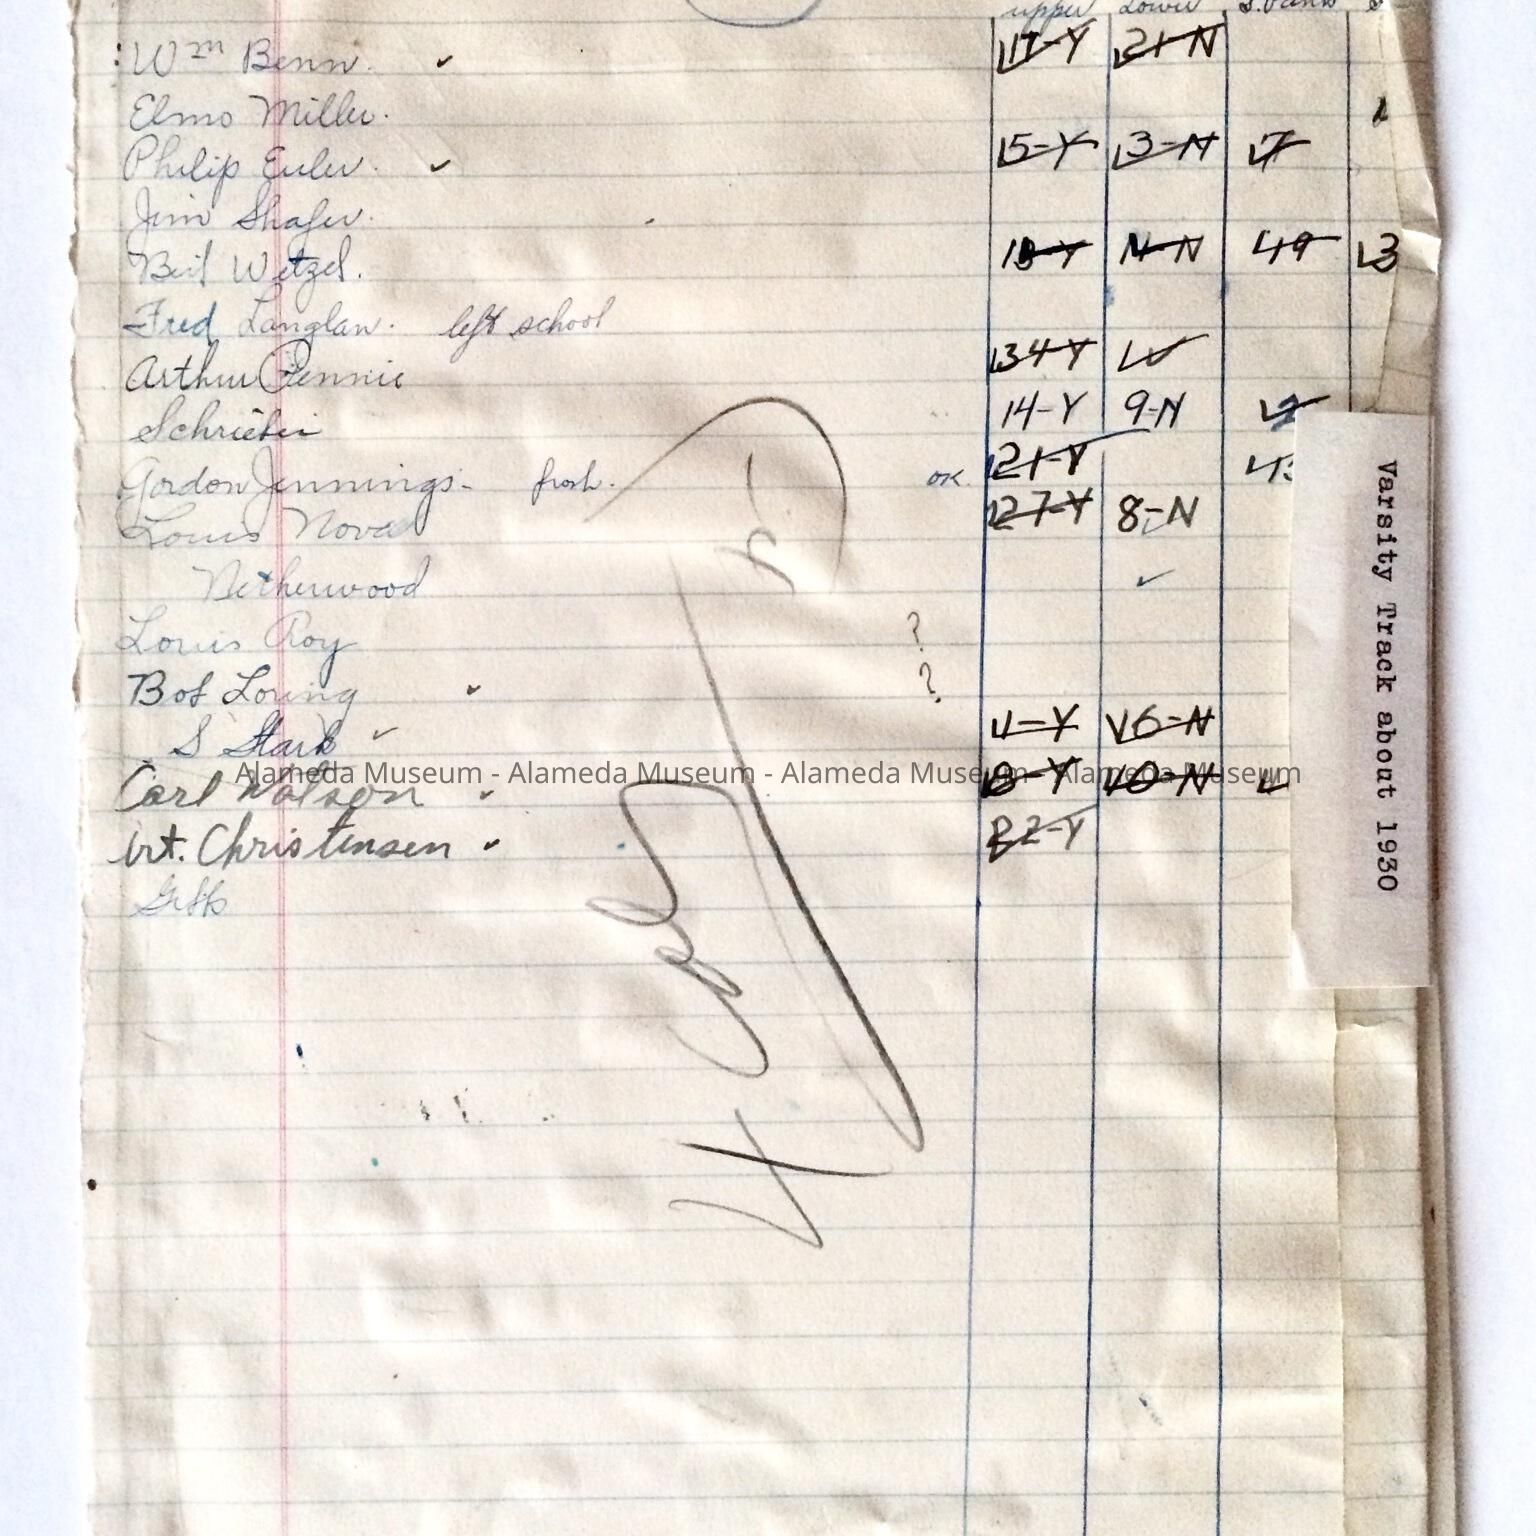 upper Lower S. Pants
Wm Benn. ✓ 17-Y 21-N
Elmo Miller.
Philip Euler. ✓ 15-Y 13-N 17
Jim Shafer.
Bud Wetzel. 18-Y 14-N 49 13
Fred Langlan. left school
Arthur Rennie 34-Y
Schrieber 14-Y 9-N
Gordon Jennings- frosh. OK. 21-Y
Louis Nova 27-Y 8-N
Netherwood ✓
Louis Roy ?
Bob Loring ✓ ?
S Stark ✓ 4-Y 16-N
Carl Watson ✓ 18-Y 10-N
Art. Christensen ✓ 22-Y
Gibbs
Varsity Track about 1930
Alameda Museum - Alameda Museum - Alameda Museum - Alameda Museum